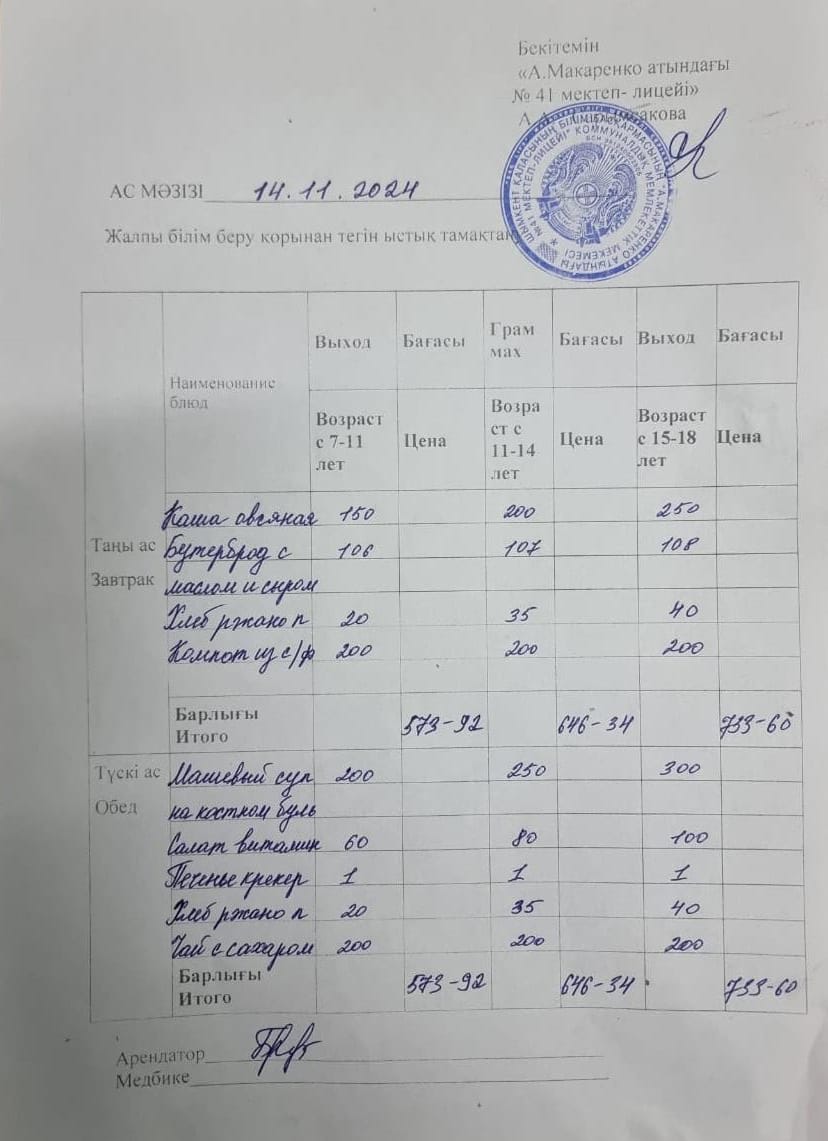 Бекітемін
«А.Макаренко атындағы
№ 41 мектеп- лицейі»
АС МӘЗІЗІ 14.11.2024
Жалпы білім беру қорынан тегін ыстық тамақтану
Наименование блюд
Выход Бағасы Грам мах Бағасы Выход Бағасы
Возраст с 7-11 лет Цена Возра ст с 11-14 лет Цена Возраст с 15-18 лет Цена
Таңы ас
Завтрак
Каша овсяная 150 200 250
Бутерброд с 106 107 108
маслом и сыром
Хлеб ржано п 20 35 40
Компот из с/ф 200 200 200
Барлығы
Итого 573-92 646-34 733-60
Түскі ас
Обед
Машевый суп 200 250 300
на костном буль
Салат витамин 60 80 100
Печенье крекер 1 1 1
Хлеб ржано п 20 35 40
Чай с сахаром 200 200 200
Барлығы
Итого 573-92 646-34 733-60
Арендатор
Медбике